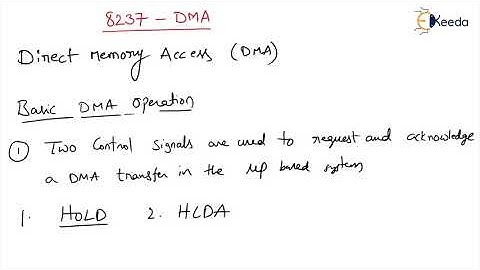 8237 - DMA
Keeda
Direct memory Access (DMA)
Basic DMA operation
① Two Control Signals are used to request and acknowledge
a DMA transfer in the μp based system
1. HOLD 2. HLDA